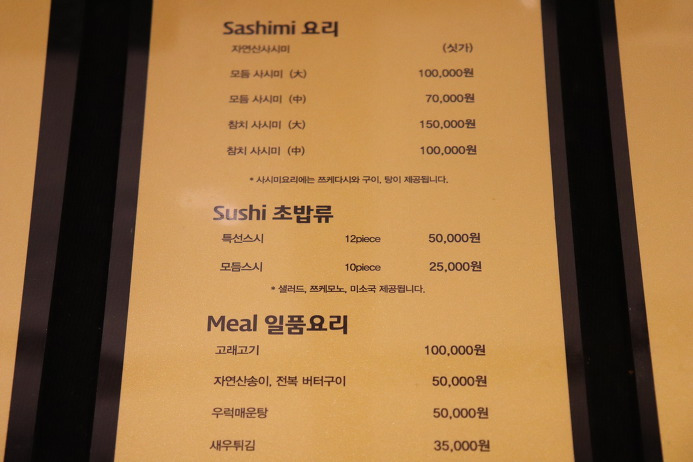 Sashimi 요리
자연산사시미 (싯가)
모듬 사시미 (大) 100,000원
모듬 사시미 (中) 70,000원
참치 사시미 (大) 150,000원
참치 사시미 (中) 100,000원
* 사시미요리에는 쯔케다시와 구이, 탕이 제공됩니다.
Sushi 초밥류
특선스시 12piece 50,000원
모듬스시 10piece 25,000원
* 샐러드, 쯔케모노, 미소국 제공됩니다.
Meal 일품요리
고래고기 100,000원
자연산송이, 전복 버터구이 50,000원
우럭매운탕 50,000원
새우튀김 35,000원